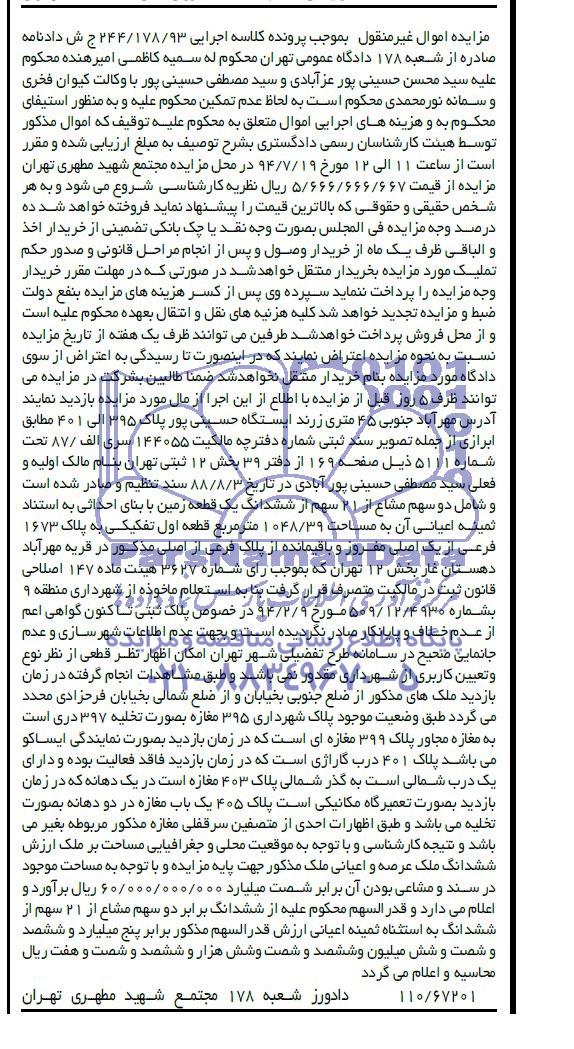 مزایده اموال غیرمنقول بموجب پرونده کلاسه اجرایی ۲۴۴/۱۷۸/۹۳ ج ش دادنامه
صادره از شعبه ۱۷۸ دادگاه عمومی تهران محکوم له سمیه کاظمی امیرهنده محکوم
علیه سید محسن حسینی پور عزآبادی و سید مصطفی حسینی پور با وکالت کیوان فخری
و سمانه نورمحمدی محکوم است به لحاظ عدم تمکین محکوم علیه و به منظور استیفای
محکوم به و هزینه های اجرایی اموال متعلق به محکوم علیه توقیف که اموال مذکور
توسط هیئت کارشناسان رسمی دادگستری بشرح توصیف به مبلغ ارزیابی شده و مقرر
است از ساعت ۱۱ الی ۱۲ مورخ ۹۴/۷/۱۹ در محل مزایده مجتمع شهید مطهری تهران
مزایده از قیمت ۵/۶۶۶/۶۶۶/۶۶۷ ریال نظریه کارشناسی شروع می شود و به هر
شخص حقیقی و حقوقی که بالاترین قیمت را پیشنهاد نماید فروخته خواهد شد ده
درصد وجه مزایده فی المجلس بصورت وجه نقد یا چک بانکی تضمینی از خریدار اخذ
و الباقی ظرف یک ماه از خریدار وصول و پس از انجام مراحل قانونی و صدور حکم
تملیک مورد مزایده بخریدار منتقل خواهدشد در صورتی که در مهلت مقرر خریدار
وجه مزایده را پرداخت ننماید سپرده وی پس از کسر هزینه های مزایده بنفع دولت
ضبط و مزایده تجدید خواهد شد کلیه هزنیه های نقل و انتقال بعهده محکوم علیه است
و از محل فروش پرداخت خواهدشد طرفین می توانند ظرف یک هفته از تاریخ مزایده
نسبت به نحوه مزایده اعتراض نمایند که در اینصورت تا رسیدگی به اعتراض از سوی
دادگاه مورد مزایده بنام خریدار منتقل نخواهدشد ضمنا طالبین بشرکت در مزایده می
توانند ظرف ۵ روز قبل از مزایده با اطلاع از این اجرا از مال مورد مزایده بازدید نمایند
آدرس مهرآباد جنوبی ۴۵ متری زرند ایستگاه حسینی پور پلاک ۳۹۵ الی ۴۰۱ مطابق
ابرازی از جمله تصویر سند ثبتی شماره دفترچه مالکیت ۱۴۴۰۵۵ سری الف /۸۷ تحت
شماره ۵۱۱۱ ذیل صفحه ۱۶۹ از دفتر ۳۹ بخش ۱۲ ثبتی تهران بنام مالک اولیه و
فعلی سید مصطفی حسینی پور آبادی در تاریخ ۸۸/۸/۳ سند تنظیم و صادر شده است
و شامل دو سهم مشاع از ۲۱ سهم از ششدانگ یک قطعه زمین با بنای احداثی به استناد
ثمنیه اعیانی آن به مساحت ۱۰۴۸/۳۹ مترمربع قطعه اول تفکیکی به پلاک ۱۶۷۳
فرعی از یک اصلی مفروز و باقیمانده از پلاک فرعی از اصلی مذکور در قریه مهرآباد
دهستان غار بخش ۱۲ تهران که بموجب رای شماره ۳۶۲۷ هیئت ماده ۱۴۷ اصلاحی
قانون ثبت در مالکیت متصرف قرار گرفت بنا به استعلام ماخوذه از شهرداری منطقه ۹
بشماره ۵۰۹/۱۲/۴۹۳۰ مورخ ۹۴/۲/۹ در خصوص پلاک ثبتی تاکنون گواهی اعم
از عدم خلاف و پایانکار صادر نگردیده است و بجهت عدم اطلاعات شهرسازی و عدم
جانمایی صحیح در سامانه طرح تفضیلی شهر تهران امکان اظهار نظر قطعی از نظر نوع
وتعیین کاربری از شهرداری مقدور نمی باشد و طبق مشاهدات انجام گرفته در زمان
بازدید ملک های مذکور از ضلع جنوبی بخیابان و از ضلع شمالی بخیابان فرحزادی محدد
می گردد طبق وضعیت موجود پلاک شهرداری ۳۹۵ مغازه بصورت تخلیه ۳۹۷ دری است
به مغازه مجاور پلاک ۳۹۹ مغازه ای است که در زمان بازدید بصورت نمایندگی ایساکو
می باشد پلاک ۴۰۱ درب گاراژی است که در زمان بازدید فاقد فعالیت بوده و دارای
یک درب شمالی است به گذر شمالی پلاک ۴۰۳ مغازه است در یک دهانه که در زمان
بازدید بصورت تعمیرگاه مکانیکی است پلاک ۴۰۵ یک باب مغازه در دو دهانه بصورت
تخلیه می باشد و طبق اظهارات احدی از متصفین سرقفلی مغازه مذکور مربوطه بغیر می
باشد و نتیجه کارشناسی و با توجه به موقعیت محلی و جغرافیایی مساحت بر ملک ارزش
ششدانگ ملک عرصه و اعیانی ملک مذکور جهت پایه مزایده و با توجه به مساحت موجود
در سند و مشاعی بودن آن برابر شصت میلیارد ۶۰/۰۰۰/۰۰۰/۰۰۰ ریال برآورد و
اعلام می دارد و قدرالسهم محکوم علیه از ششدانگ برابر دو سهم مشاع از ۲۱ سهم از
ششدانگ به استثناه ثمینه اعیانی ارزش قدرالسهم مذکور برابر پنج میلیارد و ششصد
و شصت و شش میلیون وششصد و شصت وشش هزار و ششصد و شصت و هفت ریال
محاسبه و اعلام می گردد
۱۱۰/۶۷۲۰۱ دادورز شعبه ۱۷۸ مجتمع شهید مطهری تهران
ParsNamadData
پایگاه اطلاع رسانی مناقصه و مزایده
۰۲۱-۸۸۳۴۹۶۷۰-۵